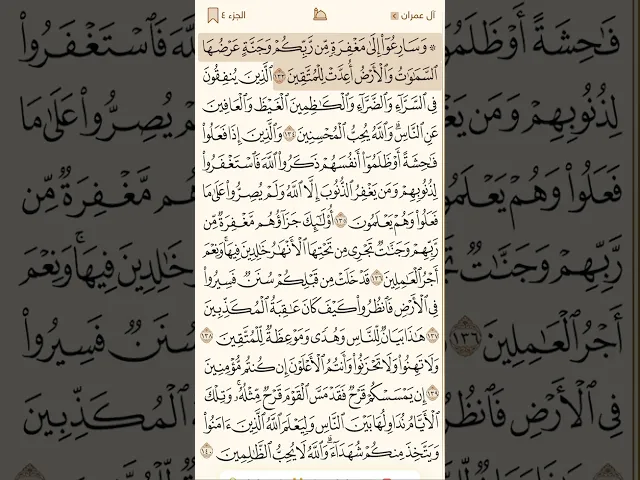 آل عمران
الجزء ٤
۞ وَسَارِعُوٓاْ إِلَىٰ مَغْفِرَةٍ مِّن رَّبِّكُمْ وَجَنَّةٍ عَرْضُهَا
ٱلسَّمَٰوَٰتُ وَٱلْأَرْضُ أُعِدَّتْ لِلْمُتَّقِينَ ١٣٣ ٱلَّذِينَ يُنفِقُونَ
فِى ٱلسَّرَّآءِ وَٱلضَّرَّآءِ وَٱلْكَٰظِمِينَ ٱلْغَيْظَ وَٱلْعَافِينَ
عَنِ ٱلنَّاسِ ۗ وَٱللَّهُ يُحِبُّ ٱلْمُحْسِنِينَ ١٣٤ وَٱلَّذِينَ إِذَا فَعَلُواْ
فَٰحِشَةً أَوْ ظَلَمُوٓاْ أَنفُسَهُمْ ذَكَرُواْ ٱللَّهَ فَٱسْتَغْفَرُواْ
لِذُنُوبِهِمْ وَمَن يَغْفِرُ ٱلذُّنُوبَ إِلَّا ٱللَّهُ وَلَمْ يُصِرُّواْ عَلَىٰ مَا
فَعَلُواْ وَهُمْ يَعْلَمُونَ ١٣٥ أُوْلَٰٓئِكَ جَزَآؤُهُم مَّغْفِرَةٌ مِّن
رَّبِّهِمْ وَجَنَّٰتٌ تَجْرِى مِن تَحْتِهَا ٱلْأَنْهَٰرُ خَٰلِدِينَ فِيهَا ۚ وَنِعْمَ
أَجْرُ ٱلْعَٰمِلِينَ ١٣٦ قَدْ خَلَتْ مِن قَبْلِكُمْ سُنَنٌ فَسِيرُواْ
فِى ٱلْأَرْضِ فَٱنظُرُواْ كَيْفَ كَانَ عَٰقِبَةُ ٱلْمُكَذِّبِينَ
١٣٧ هَٰذَا بَيَانٌ لِّلنَّاسِ وَهُدًى وَمَوْعِظَةٌ لِّلْمُتَّقِينَ ١٣٨
وَلَا تَهِنُواْ وَلَا تَحْزَنُواْ وَأَنتُمُ ٱلْأَعْلَوْنَ إِن كُنتُم مُّؤْمِنِينَ
١٣٩ إِن يَمْسَسْكُمْ قَرْحٌ فَقَدْ مَسَّ ٱلْقَوْمَ قَرْحٌ مِّثْلُهُۥ ۚ وَتِلْكَ
ٱلْأَيَّامُ نُدَاوِلُهَا بَيْنَ ٱلنَّاسِ وَلِيَعْلَمَ ٱللَّهُ ٱلَّذِينَ ءَامَنُواْ
وَيَتَّخِذَ مِنكُمْ شُهَدَآءَ ۗ وَٱللَّهُ لَا يُحِبُّ ٱلظَّٰلِمِينَ ١٤٠